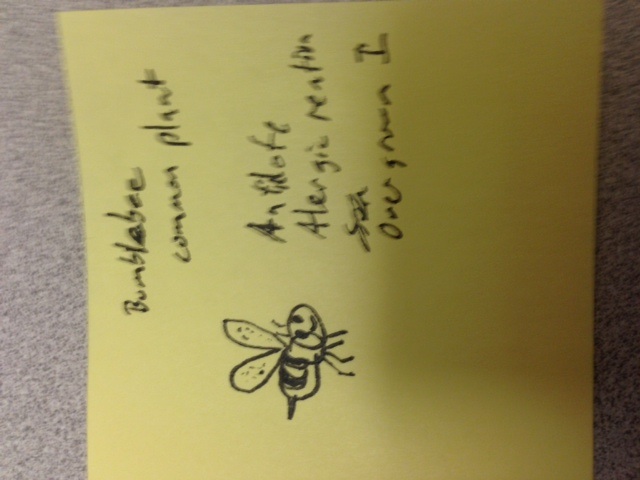 Bumblebee
common plant
Antidote
Alergic reation
Overgrown I